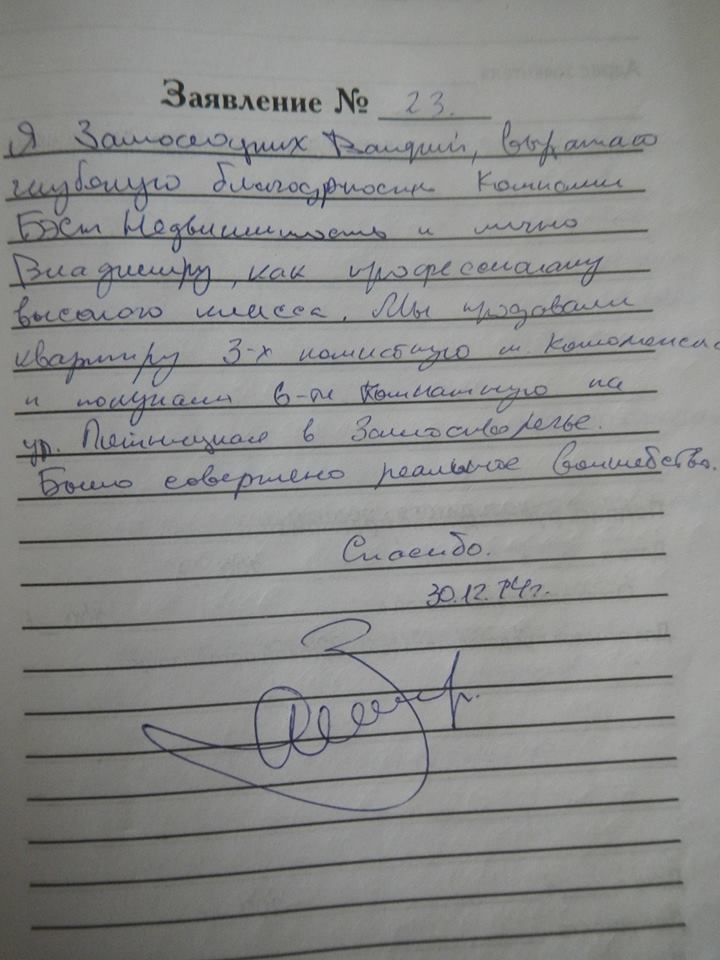 Заявление № 23.
Я выражаю
глубокую благодарность Компании
Бэст Недвижимость и лично
Владимиру, как профессионалу
высокого класса. Мы продавали
квартиру 3-х комнатную м.
и покупали 6-ти комнатную на
ул. Пятницкая в Замоскворечье.
Было совершено реальное волшебство.
Спасибо.
30.12.14г.